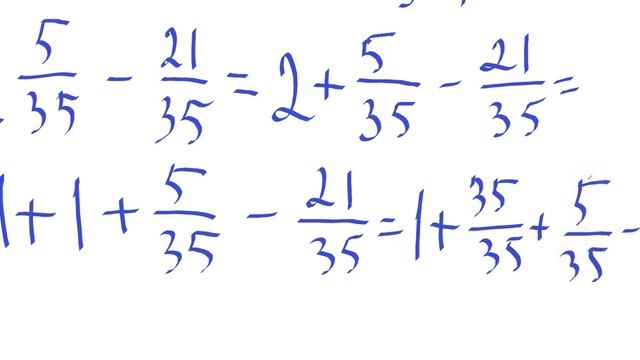 5/35 - 21/35 = 2 + 5/35 - 21/35 =
1 + 1 + 5/35 - 21/35 = 1 + 35/35 + 5/35 -